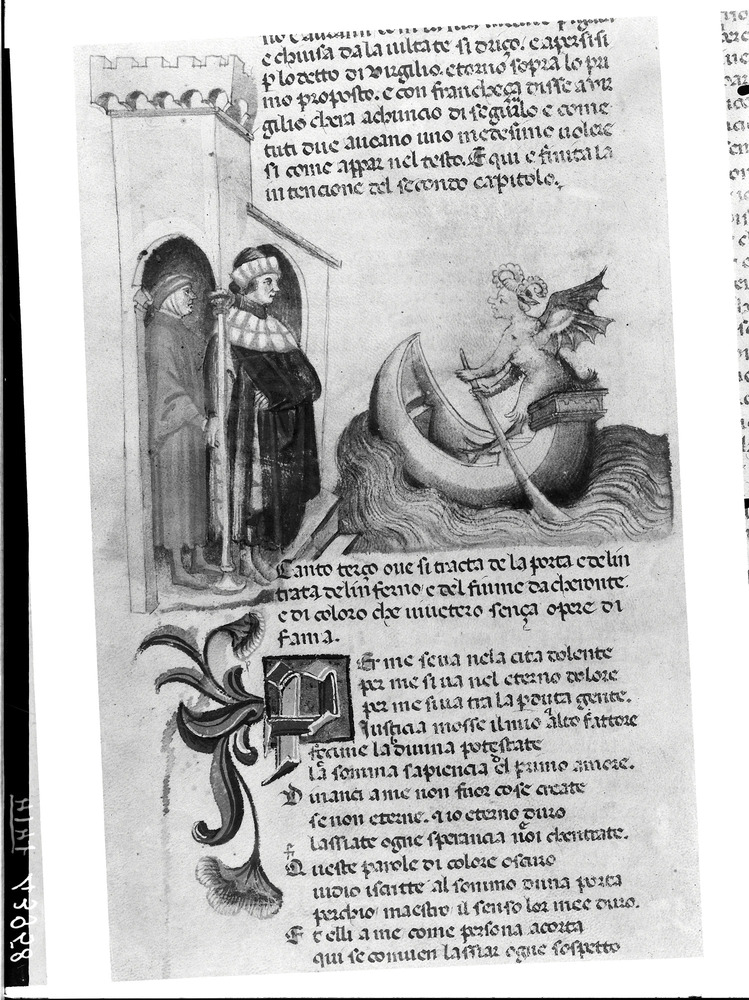 e chiusa da la viltate si driço. e apersisi
p lo detto di virgilio. e torno sopra lo pri
mo proposto. e con francheça disse a vir
gilio chera achuncio di seguirlo e come
tuti due aveano uno medesimo volere
si come appar nel testo. E qui e finita la
intencione del secondo capitolo.
Canto terço ove si tracta de la porta e de lin
trata de linferno e del fiume da cheronte
e di coloro che vivetero sença opere di
fama.
Per me se va nela cita dolente
per me si va nel eterno dolore
per me si va tra la pduta gente.
Iusticia mosse il mio alto fattore
fecime la divina potestate
la somma sapiencia el primo amore.
Dinanci a me non fuor cose create
se non eterne. 7 io eterno duro
lassiate ogne sperancia voi chentrate.
Queste parole di colore oscuro
vidio iscritte al sommo duna porta
perchio maestro il senso lor mee duro.
Et elli a me come persona acorta
qui se convien lassiar ogne sospetto